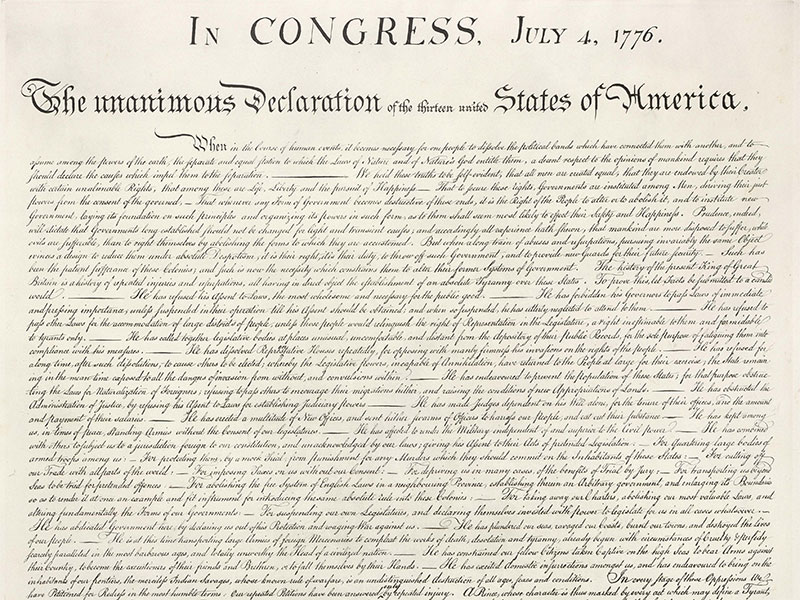 IN CONGRESS, JULY 4, 1776.
The unanimous Declaration of the thirteen united States of America,
When in the Course of human events, it becomes necessary for one people to dissolve the political bands which have connected them with another, and to
assume among the powers of the earth, the separate and equal station to which the Laws of Nature and of Nature's God entitle them, a decent respect to the opinions of mankind requires that they
should declare the causes which impel them to the separation. We hold these truths to be self-evident, that all men are created equal, that they are endowed by their Creator
with certain unalienable Rights, that among these are Life, Liberty and the pursuit of Happiness.— That to secure these rights, Governments are instituted among Men, deriving their just
powers from the consent of the governed,— That whenever any Form of Government becomes destructive of these ends, it is the Right of the People to alter or to abolish it, and to institute new
Government, laying its foundation on such principles and organizing its powers in such form, as to them shall seem most likely to effect their Safety and Happiness. Prudence, indeed,
will dictate that Governments long established should not be changed for light and transient causes; and accordingly all experience hath shewn, that mankind are more disposed to suffer, while
evils are sufferable, than to right themselves by abolishing the forms to which they are accustomed. But when a long train of abuses and usurpations, pursuing invariably the same Object
evinces a design to reduce them under absolute Despotism, it is their right, it is their duty, to throw off such Government, and to provide new Guards for their future security.— Such has
been the patient sufferance of these Colonies; and such is now the necessity which constrains them to alter their former Systems of Government. The history of the present King of Great
Britain is a history of repeated injuries and usurpations, all having in direct object the establishment of an absolute Tyranny over these States. To prove this, let Facts be submitted to a candid
world. He has refused his Assent to Laws, the most wholesome and necessary for the public good. He has forbidden his Governors to pass Laws of immediate
and pressing importance, unless suspended in their operation till his Assent should be obtained; and when so suspended, he has utterly neglected to attend to them. He has refused to
pass other Laws for the accommodation of large districts of people, unless those people would relinquish the right of Representation in the Legislature, a right inestimable to them and formidable
to tyrants only. He has called together legislative bodies at places unusual, uncomfortable, and distant from the depository of their Public Records, for the sole purpose of fatiguing them into
compliance with his measures. He has dissolved Representative Houses repeatedly, for opposing with manly firmness his invasions on the rights of the people. He has refused for
a long time, after such dissolutions, to cause others to be elected; whereby the Legislative powers, incapable of Annihilation, have returned to the People at large for their exercise; the State remain
ing in the mean time exposed to all the dangers of invasion from without, and convulsions within. He has endeavoured to prevent the population of these States; for that purpose obstruc
ting the Laws for Naturalization of Foreigners; refusing to pass others to encourage their migrations hither, and raising the conditions of new Appropriations of Lands. He has obstructed the
Administration of Justice, by refusing his Assent to Laws for establishing Judiciary powers. He has made Judges dependent on his Will alone, for the tenure of their offices, and the amount
and payment of their salaries. He has erected a multitude of New Offices, and sent hither swarms of Officers to harrass our people, and eat out their substance. He has kept among
us, in times of peace, Standing Armies without the Consent of our legislatures. He has affected to render the Military independent of and superior to the Civil power. He has combined
with others to subject us to a jurisdiction foreign to our constitution, and unacknowledged by our laws; giving his Assent to their Acts of pretended Legislation: For Quartering large bodies of
armed troops among us: For protecting them, by a mock Trial, from punishment for any Murders which they should commit on the Inhabitants of these States: For cutting off
our Trade with all parts of the world: For imposing Taxes on us without our Consent: For depriving us in many cases, of the benefits of Trial by Jury: For transporting us beyond
Seas to be tried for pretended offences: For abolishing the free System of English Laws in a neighbouring Province, establishing therein an Arbitrary government, and enlarging its Boundaries
so as to render it at once an example and fit instrument for introducing the same absolute rule into these Colonies: For taking away our Charters, abolishing our most valuable Laws, and
altering fundamentally the Forms of our Governments: For suspending our own Legislatures, and declaring themselves invested with power to legislate for us in all cases whatsoever.
He has abdicated Government here, by declaring us out of his Protection and waging War against us. He has plundered our seas, ravaged our Coasts, burnt our towns, and destroyed the lives
of our people. He is at this time transporting large Armies of foreign Mercenaries to compleat the works of death, desolation and tyranny, already begun with circumstances of Cruelty & perfidy
scarcely paralleled in the most barbarous ages, and totally unworthy the Head of a civilized nation. He has constrained our fellow Citizens taken Captive on the high Seas to bear Arms against
their Country, to become the executioners of their friends and Brethren, or to fall themselves by their Hands. He has excited domestic insurrections amongst us, and has endeavoured to bring on the
inhabitants of our frontiers, the merciless Indian Savages, whose known rule of warfare, is an undistinguished destruction of all ages, sexes and conditions. In every stage of these Oppressions We
have Petitioned for Redress in the most humble terms: Our repeated Petitions have been answered only by repeated injury. A Prince, whose character is thus marked by every act which may define a Tyrant,